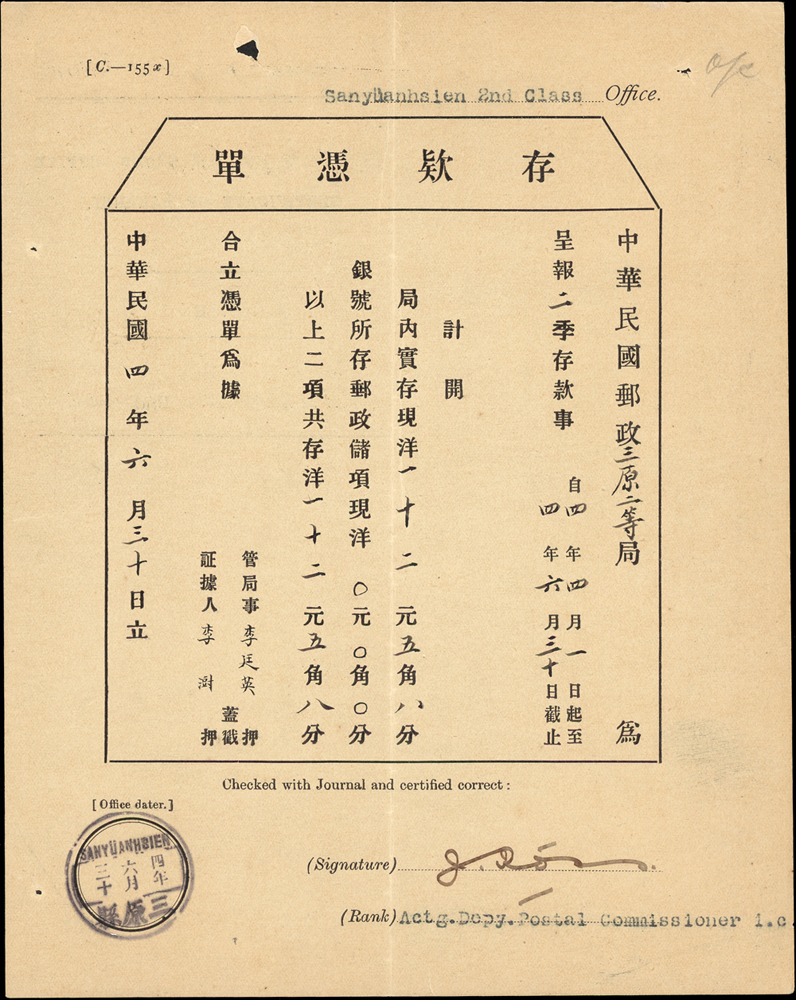 [C.—155x]
o/c
Sanyüanhsien 2nd Class Office.
存欵憑單
中華民國郵政三原二等局 為
呈報二季存款事 自四年四月一日起至
四年六月三十日截止
計開
局內實存現洋一十二元五角八分
銀號所存郵政儲項現洋〇元〇角〇分
以上二項共存洋一十二元五角八分
合立憑單為據
管局事李廷英 押
蓋戳
証據人李澍 押
中華民國四年六月三十日立
Checked with Journal and certified correct:
[Office dater.]
SANYÜANHSIEN
四年
六月
三十
三原縣
(Signature)
(Rank) Actg.Depy.Postal Commissioner i.c